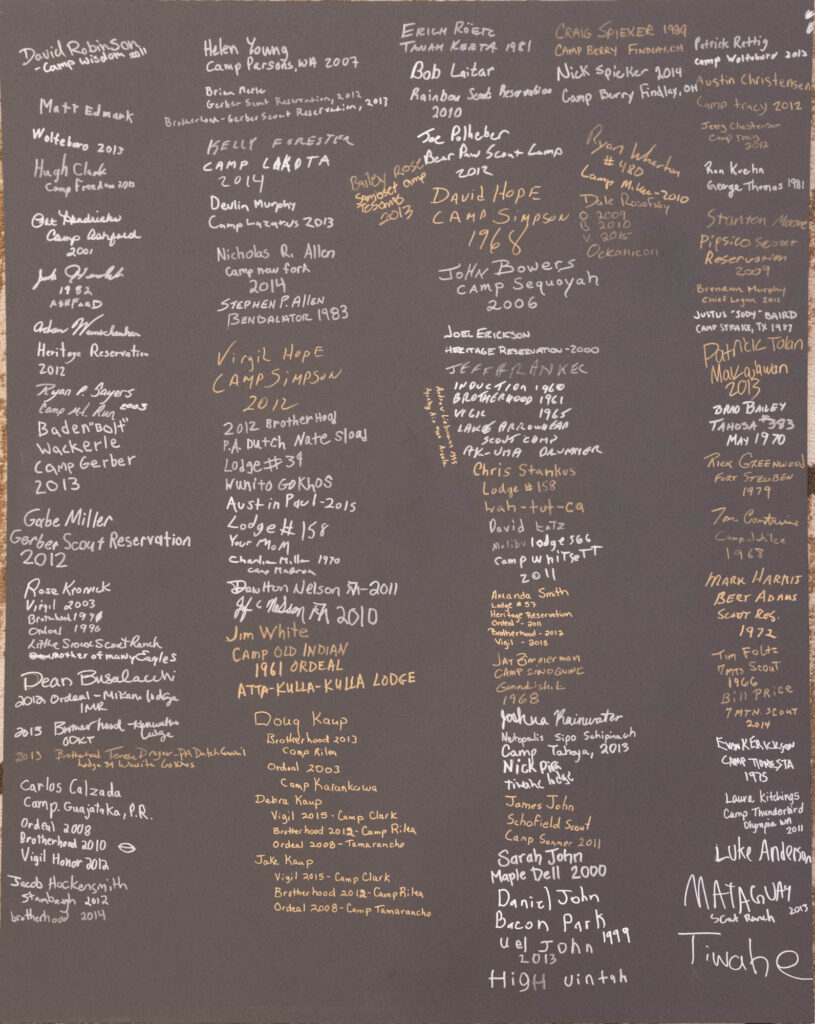 David Robinson
- Camp Wisdom 2011
Matt Edmark
Wolfeboro 2013
Hugh Clark
Camp Freedom 2010
Camp Ashford
2001
1982
ASHFORD
Adam
Heritage Reservation
2012
Ryan P. Sayers
Camp Mt. Run 2003
Baden "Bolt"
Wackerle
Camp Gerber
2013
Gabe Miller
Gerber Scout Reservation
2012
Rose Kronick
Vigil 2003
Brotherhood 1998
Ordeal 1996
Little Sioux Scout Ranch
mother of many Eagles
Dean Busalacchi
2013 Ordeal - Mikano Lodge
IMR
2015 Brotherhood - Lodge
ODKT
2013 Brotherhood Teresa Dreyer - PA Dutch Council
Lodge 39 Wunita Gokhos
Carlos Calzada
Camp. Guajataka, P.R.
Ordeal 2008
Brotherhood 2010
Vigil Honor 2012
Jacob Hockensmith
Stambaugh 2012
brotherhood 2014
Helen Young
Camp Parsons, WA 2007
Brian
Gerber Scout Reservation, 2012
Brotherhood - Gerber Scout Reservation, 2013
Kelly Forester
Camp Lakota
2014
Devlin Murphy
Camp Lazarus 2013
Nicholas R. Allen
Camp new fork
2014
Stephen P. Allen
Bendalator 1983
Virgil Hope
Camp Simpson
2012
2012 Brotherhood
P.A. Dutch Nate Sload
Lodge # 39
Wunito GoKhos
Austin Paul - 2015
Lodge # 158
Your Mom
Charlie Miller 1970
Camp
Dawtton Nelson - 2011
Nelson 2010
Jim White
Camp Old Indian
1961 Ordeal
Atta-Kulla-Kulla Lodge
Doug Kaup
Brotherhood 2013
Camp Rilea
Ordeal 2003
Camp Karankawa
Debra Kaup
Vigil 2015 - Camp Clark
Brotherhood 2012 - Camp Rilea
Ordeal 2008 - Tamarancho
Jake Kaup
Vigil 2015 - Camp Clark
Brotherhood 2012 - Camp Rilea
Ordeal 2008 - Camp Tamarancho
Erich Röetz
Tanah Keeta 1981
Bob Laitar
Rainbow Scout Reservation
2010
Joe Polheber
Bear Paw Scout Camp
2012
Bailey Rose
Samoset camp
Tesomas
2013
David Hope
Camp Simpson
1968
John Bowers
Camp Sequoyah
2006
Joel Erickson
Heritage Reservation - 2000
Jeff Frankel
Induction 1960
Brotherhood 1961
Vigil 1965
Lake Arrowhead
Scout Camp
AK-UMA Drummer
Chris Stankus
Lodge # 158
Wah-tut-ca
David Katz
Malibu lodge 566
Camp Whitsett
2011
Amanda Smith
Lodge # 57
Heritage Reservation
Ordeal - 2011
Brotherhood - 2012
Vigil - 2015
Jay Zimmerman
Camp Sinoquipe
Gonnukishik
1968
Joshua Rainwater
Natopalis Sipo Schipinach
Camp Tahoya, 2013
Nick
Tiwahe lodge
James John
Schofield Scout
Camp Summer 2011
Sarah John
Maple Dell 2000
Daniel John
Bacon Park
1999
Uel John
2013
High Uintah
Craig Spieker 1989
Camp Berry Findlay, OH
Nick Spieker 2014
Camp Berry Findlay, OH
Ryan Wharton
# 480
Camp Mikee - 2010
Dale Rosofsky
O 2009
B 2010
V 2015
Ockanicon
Patrick Rettig
Camp Wolfeboro 2012
Austin Christensen
Camp tracy 2012
Jerry Christensen
Camp Tracy
2012
Ron Kuehn
George Thomas 1981
Stanton Moore
Pipsico Scout
Reservation
2009
Brendan Murphy
Chief Logan 2011
Justus "Jody" Baird
Camp Strake, TX 1987
Patrick Tolan
Makajawan
2013
Brad Bailey
Tahosa #383
May 1970
Rick Greenwood
Fort Steuben
1979
Tom
Camp
1968
Mark Harris
Bert Adams
Scout Res.
1972
Tim Foltz
7 mts Scout
1966
Bill Price
7 mtn. Scout
2014
Evan K Erickson
Camp Tionesta
1975
Laura Kitchings
Camp Thunderbird
Olympia WA
2011
Luke Anderson
Mataguay
Scout Ranch 2013
Tiwahe